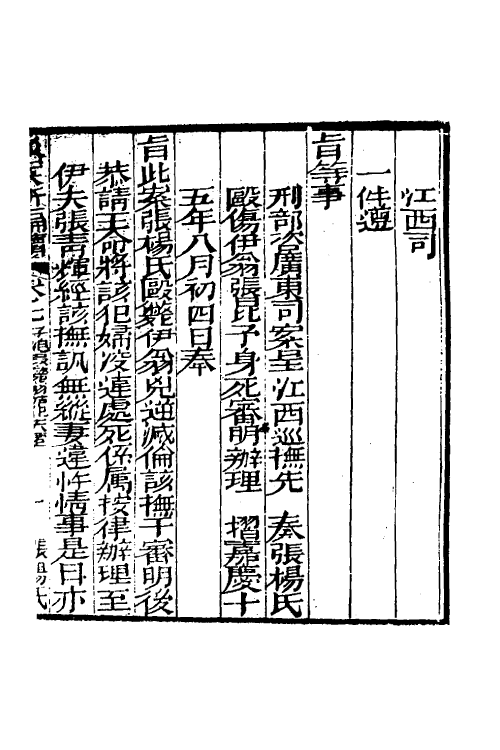 江西司
一件遵
旨等事
刑部咨廣東司案呈江西巡撫先　奏張楊氏
毆傷伊翁張昆予身死審明辦理　摺嘉慶十
五年八月初四日奉
旨此案張楊氏毆斃伊翁兇逆滅倫該撫于審明後
恭請王命將該犯婦凌遲處死係屬按律辦理至
伊夫張青輝經該撫訊無縱妻違忤情事是日亦
一　張楊氏